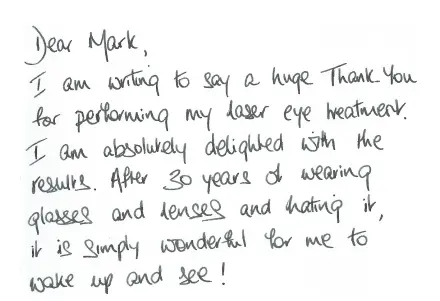 Dear Mark,
I am writing to say a huge Thank You
for performing my laser eye treatment.
I am absolutely delighted with the
results. After 30 years of wearing
glasses and lenses and hating it,
it is simply wonderful for me to
wake up and see!